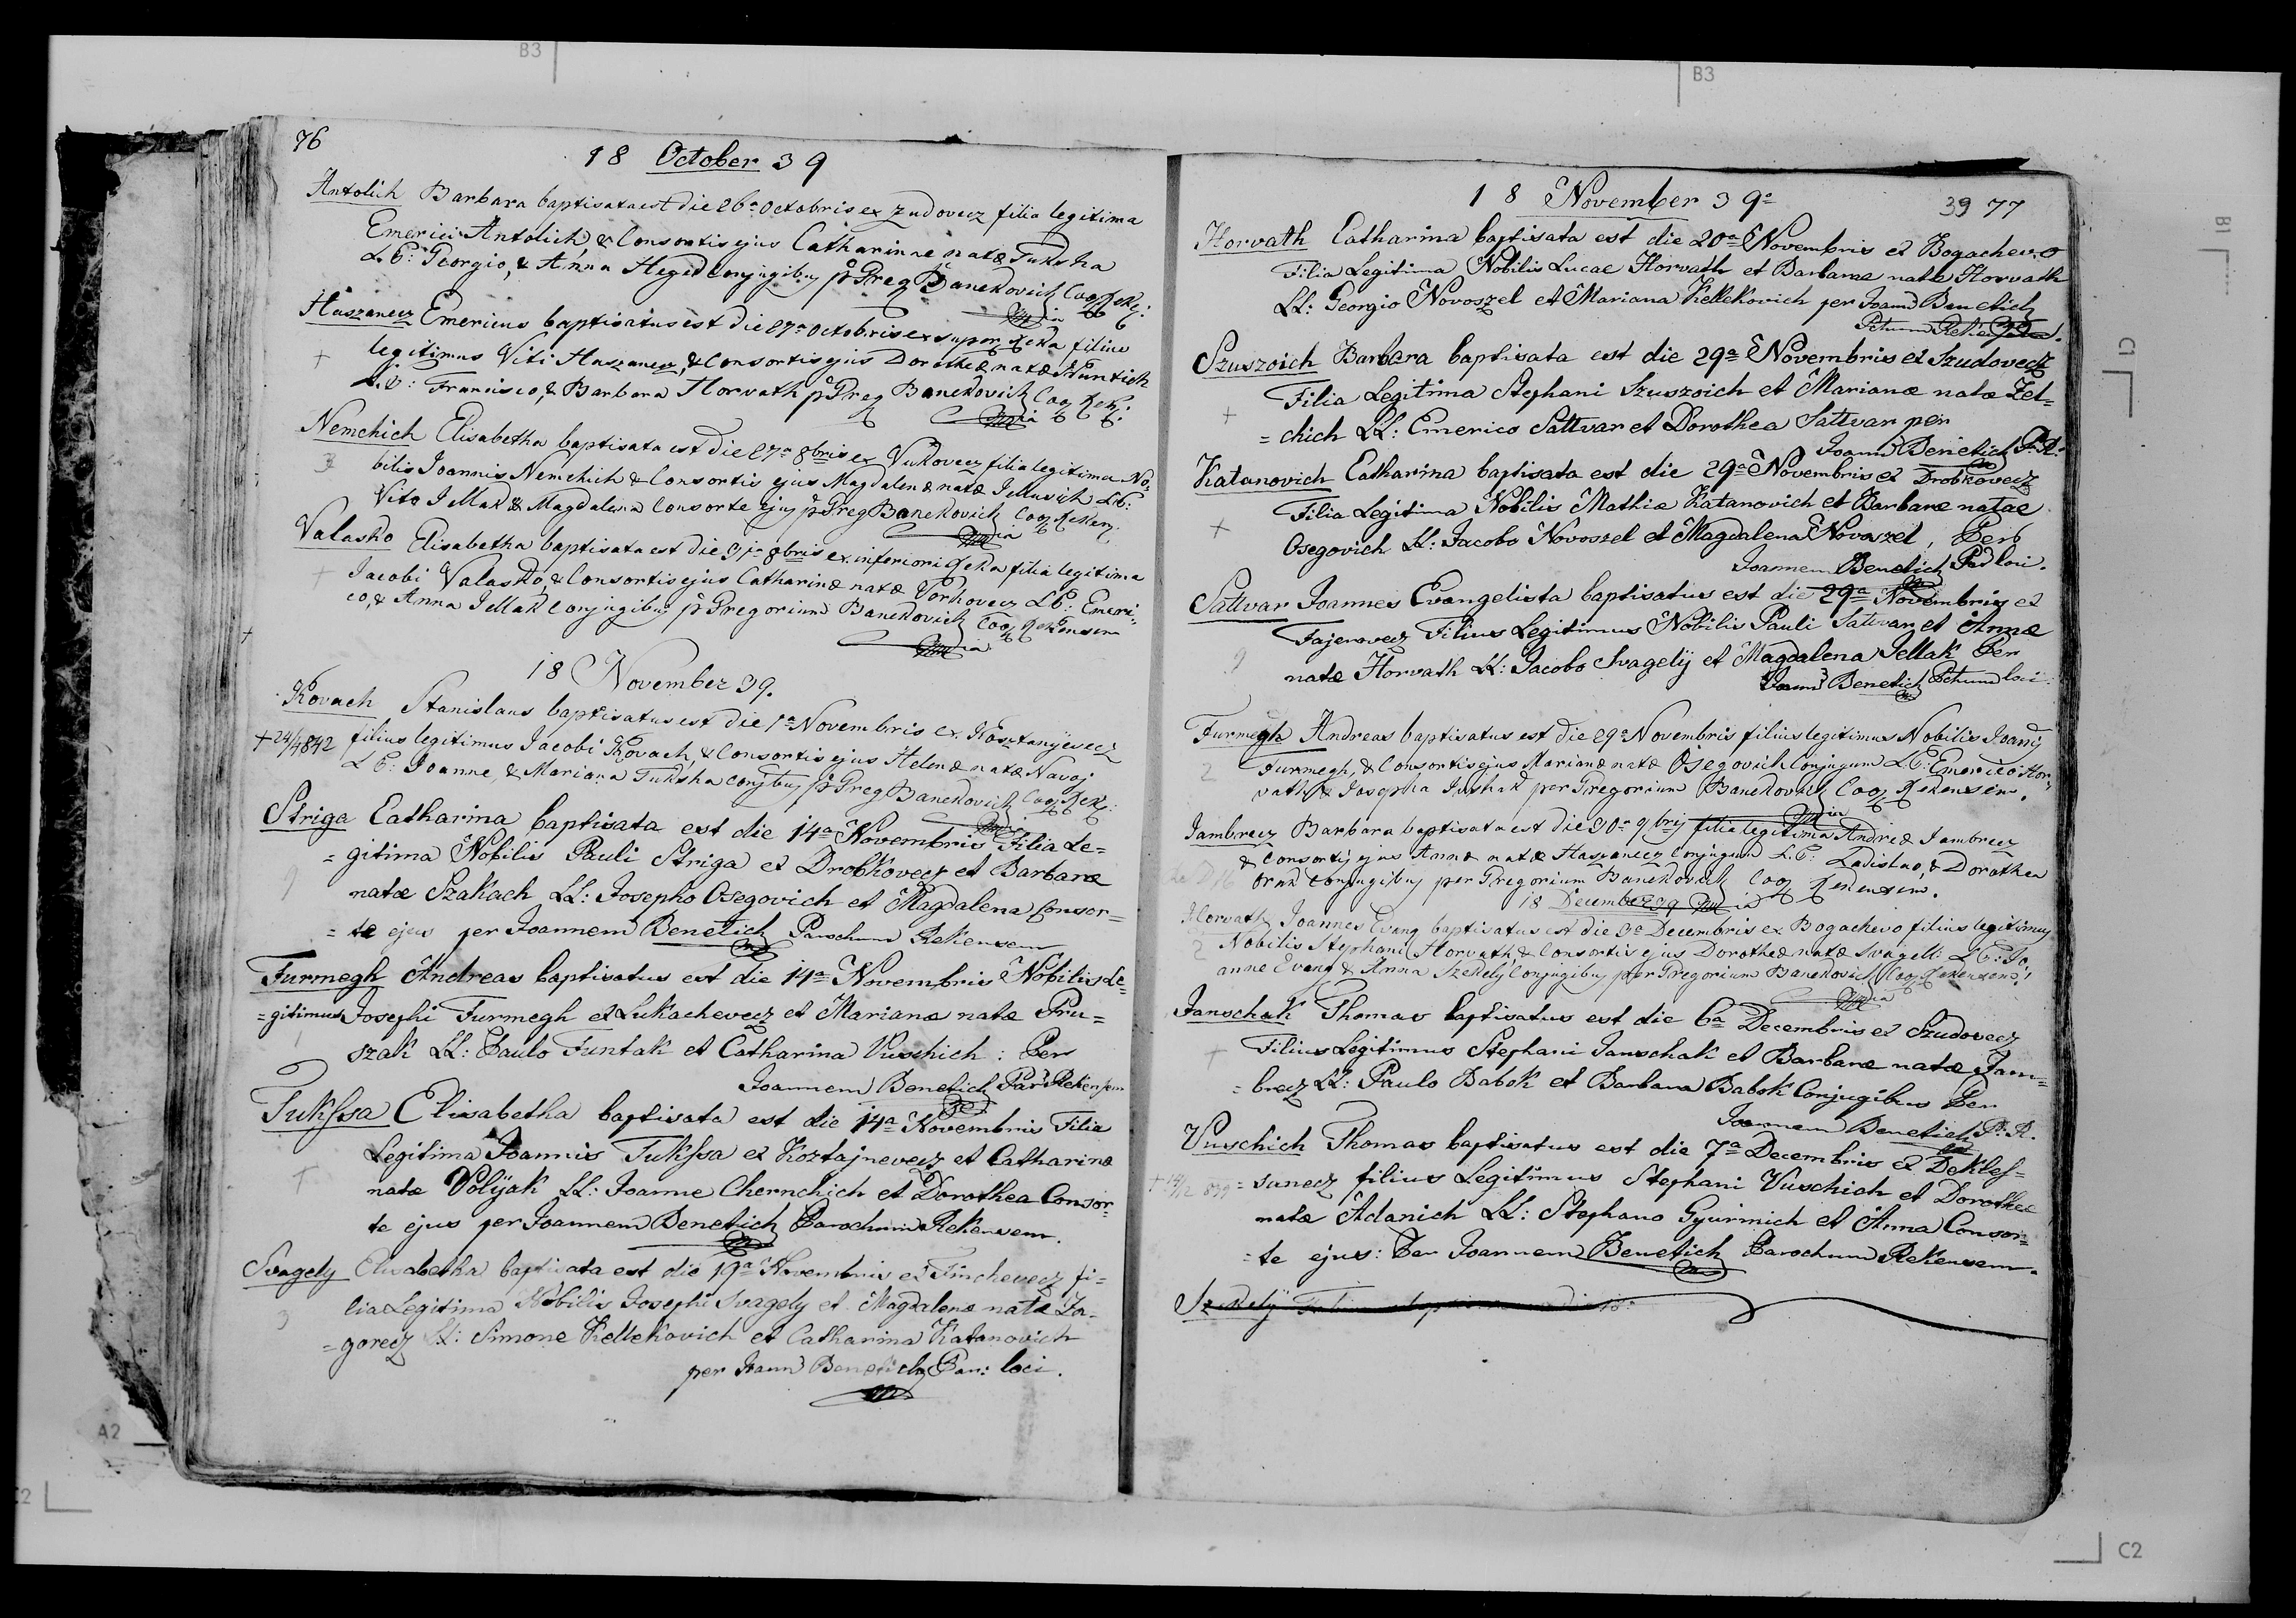 76
18 October 39
Antolich Barbara baptisata est die 26a Octobris ex Zudovecz filia legitima
Emerici Antolich & Consortis ejus Catharinae natæ Tuksha
LP: Georgio, & Anna Heged conjugibus p Greg Banekovich Coop Reke:
Haszanecz Emericus baptisatus est die 27a Octobris ex super. Reka filius
legitimus Viti Haszanecz, & Consortis ejus Dorotheæ natæ
LP: Francisco, & Barbara Horvath p Greg Banekovich Coop Rek:
Nemchich Elisabetha baptisata est die 27a 8bris ex Vukovecz filia legitima No-
bilis Joannis Nemchich & Consortis ejus Magdalenæ natæ Jellusich LP:
Vito Jellak & Magdalena Consorte ejus p Greg Banekovich Coop Reken.
Valasko Elisabetha baptisata est die 31a 8bris ex inferiori Reka filia legitima
Jacobi Valasko, & Consortis ejus Catharinæ natæ Vorhovecz LP: Emeri-
co, & Anna Jellak conjugibus p Gregorium Banekovich Coop Rekensem
18 November 39.
Kovach Stanislaus baptisatus est die 1a Novembris ex Kosztanyevecz
+ 24/4 842 filius legitimus Jacobi Kovach, & Consortis ejus Helenæ natæ Navoj
LP: Joanne, & Mariana Tuksha conjbus p Greg Banekovich Coop Reke:
Striga Catharina baptisata est die 14a Novembris Filia Le=
= gitima Nobilis Pauli Striga ex Drobkovecz et Barbaræ
natæ Szakach LL: Josepho Osegovich et Magdalena Consor=
= te ejus per Joannem Benetich Parochum Rekensem
Furmegh Andreas baptisatus est die 14a Novembris Nobilis Le=
= gitimus Josephi Furmegh ex Lukachevecz et Marianæ natæ Pru=
szak LL: Paulo Funtak et Catharina Vuschich: Per
Joannem Benetich Par Rekensem
Tukssa Elisabetha baptisata est die 14a Novembris Filia
Legitima Joannis Tukssa ex Koztajnevecz et Catharinæ
natæ Volijak LL: Joanne Chernchich et Dorothea Consor=
te ejus per Joannem Benetich Parochum Rekensem.
Svagely Elisabetha baptisata est die 19a Novembris ex Finchevecz fi=
3 lia Legitima Nobilis Josephi Svagely et Magdalenæ natæ Za-
= gorecz LL: Simone Kellekovich et Catharina Katanovich
per Joann Benetich Par: loci.
18 November 39a
39 77
Horvath Catharina baptisata est die 20a Novembris ex Bogachevo
Filia Legitima Nobilis Lucae Horvath et Barbaræ natæ Horvath
LL: Georgio Novoszel et Mariana Kellekovich per Joann Benetich
Szuszoich Barbara baptisata est die 29a Novembris ex Szudovecz
Filia Legitima Stephani Szuszoich et Marianæ natæ Zel=
= chich LL: Emerico Sattvar et Dorothea Sattvar per
Joann Benetich P. R.
Katanovich Catharina baptisata est die 29a Novembris ex Drobkovecz
Filia Legitima Nobilis Mathiæ Katanovich et Barbaræ natae
Osegovich LL: Jacobo Novoszel et Magdalena Novoszel, Per
Joannem Benetich Par loci.
Sattvar Joannes Evangelista baptisatus est die 29a Novembris ex
Fajerovecz Filius Legitimus Nobilis Pauli Sattvar et Annæ
natæ Horvath LL: Jacobo Svagelÿ et Magdalena Jellak Per
Joann Benetich Pchum loci.
Furmegh Andreas baptisatus est die 29a Novembris filius legitimus Nobilis Joanis
2 Furmegh, & Consortis ejus Marianæ natæ Osegovich Conjugum LP: Emerico Hor-
vath, & Josepha per Gregorium Banekovich Coop Rekensem.
Jambrecz Barbara baptisata est die 30a 9bris filia legitima Andreæ Jambrecz
& Consortis ejus Annæ natæ Haszanecz Conjugum LP: Ladislao, & Dorothea
conjugibus per Gregorium Banekovich Coop Rekensem.
18 December 39
Horvath Joannes Evang baptisatus est die 3a Decembris ex Bogachevo filius legitimus
2 Nobilis Stephani Horvath, & Consortis ejus Dorotheæ natæ Svagell: LP: Jo
anne Evang & Anna Szekely Conjugibus per Gregorium Banekovich Coop Rekensem.
Janschak Thomas baptisatus est die 6a Decembris ex Szudovecz
Filius Legitimus Stephani Janschak et Barbaræ natæ Jam=
= brecz LL: Paulo Babok et Barbara Babok Conjugibus Per
Joannem Benetich P. R.
Vuschich Thomas baptisatus est die 7a Decembris ex Dekles=
= sanecz filius Legitimus Stephani Vuschich et Dorotheæ
natæ Adanich LL: Stephano Gyurinich et Anna Consor=
= te ejus: Per Joannem Benetich Parochum Rekensem.
Szekelÿ